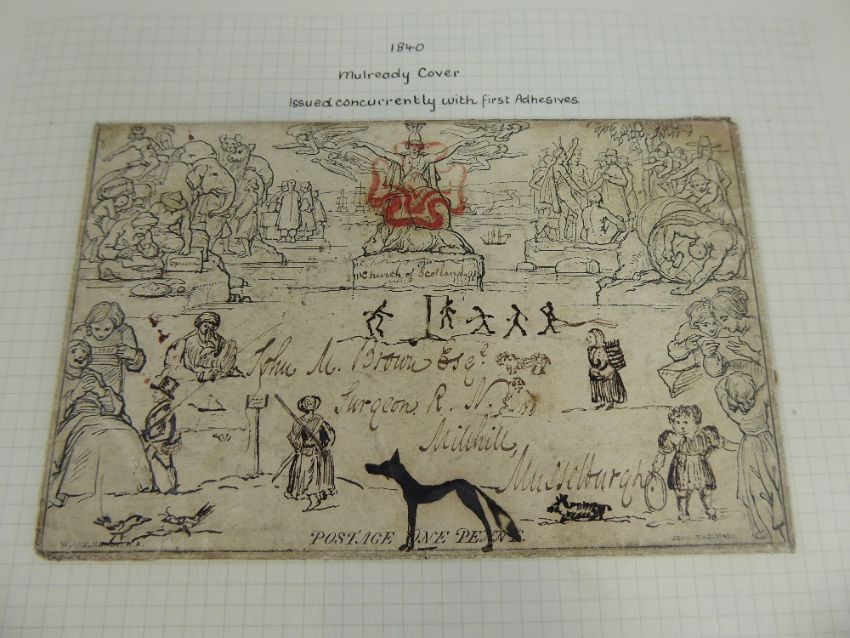 1840
Mulready Cover
Issued concurrently with first Adhesives.
Church of Scotland
John M. Brown Esqr.
Surgeon R. N.
Millhill
Musselburgh
POSTAGE ONE PENNY.
W. MULREADY. R.A.
JOHN THOMPSON